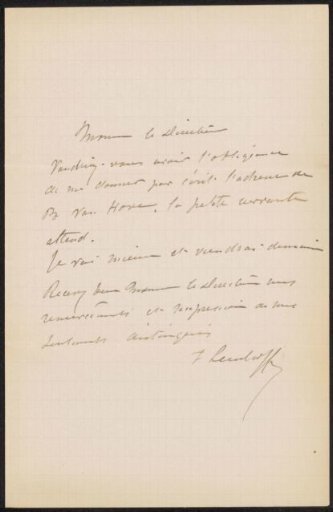 Monsieur le Directeur
Voudriez-vous avoir l'obligeance
de me donner par écrit l'adresse de
Van Hove, la petite servante
attend.
Je vais mieux et viendrai demain
Recevez Monsieur le Directeur mes
remerciements et l'expression de mes
sentiments distingués